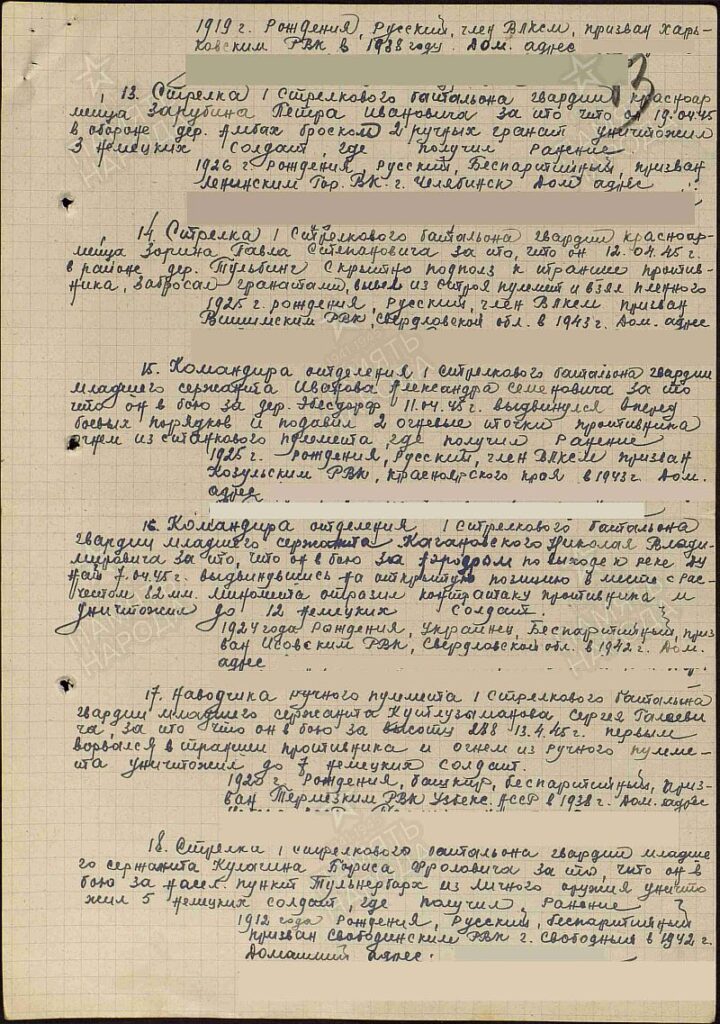 1919 г. Рождения, Русский, член ВЛКСМ, призван Харь-
ковским РВК в 1938 году. Дом. адрес
13
13. Стрелка 1 стрелкового батальона гвардии красноар
мейца Зарубина Петра Ивановича за то что он 19.04.45
в обороне дер. Ямбах броском 2 ручных гранат уничтожил
3 немецких солдат, где получил Ранение.
1926 г. Рождения, Русский, Беспартийный, призван
Ленинским Гор. ВК. г. Челябинск Дом адрес
14. Стрелка 1 стрелкового батальона гвардии красноар-
мейца Зорина Павла Степановича за то, что он 12.04.45 г.
в районе дер. Тульбинг скрытно подполз к траншее против-
ника, забросал гранатами, вывел из строя пулемет и взял пленного
1925 г. рождения, Русский, член ВЛКСМ призван
РВК, Свердловской обл. в 1943 г. Дом. адрес
15. Командира отделения 1 стрелкового батальона гвардии
младшего сержанта Александра Семеновича за то
что он в бою за дер. Эбесдорф 11.04.45 г. выдвинулся вперед
боевых порядков и подавил 2 огневые точки противника
огнем из станкового пулемета, где получил Ранение
1925 г. Рождения, Русский, член ВЛКСМ призван
Козульским РВК, Красноярского края в 1943 г. Дом.
адрес
16. Командира отделения 1 стрелкового батальона
гвардии младшего сержанта Кагановского Николая Влади-
мировича за то, что он в бою за по выходе к реке Ду
най 7.04.45 г. выдвинувшись на открытую позицию в месте с рас-
четом 82 мм. миномета отразил контратаку противника и
уничтожил до 12 немецких солдат.
1924 года Рождения, Украинец, Беспартийный, приз
ван Исовским РВК, Свердловской обл. в 1942 г. Дом.
адрес
17. Наводчика ручного пулемета 1 стрелкового батальона
гвардии младшего сержанта Кутлузаманова Сергея Галееви
ча, за то что он в бою за высоту 288 13.4.45 г. первым
ворвался в траншеи противника и огнем из ручного пулеме-
та уничтожил до 7 немецких солдат.
1920 г. Рождения, башкир, беспартийный, приз-
ван Термезким РВК Узбекс. ССР в 1938 г. Дом. адрес
18. Стрелка 1 стрелкового батальона гвардии младше
го сержанта Кулагина Бориса Фроловича за то, что он в
бою за насел. пункт Тульнербах из личного оружия уничто
жил 5 немецких солдат, где получил Ранение
1912 года Рождения, Русский, беспартийный
призван Свободинским РВК г. Свободный в 1942 г.
Домашний адрес.